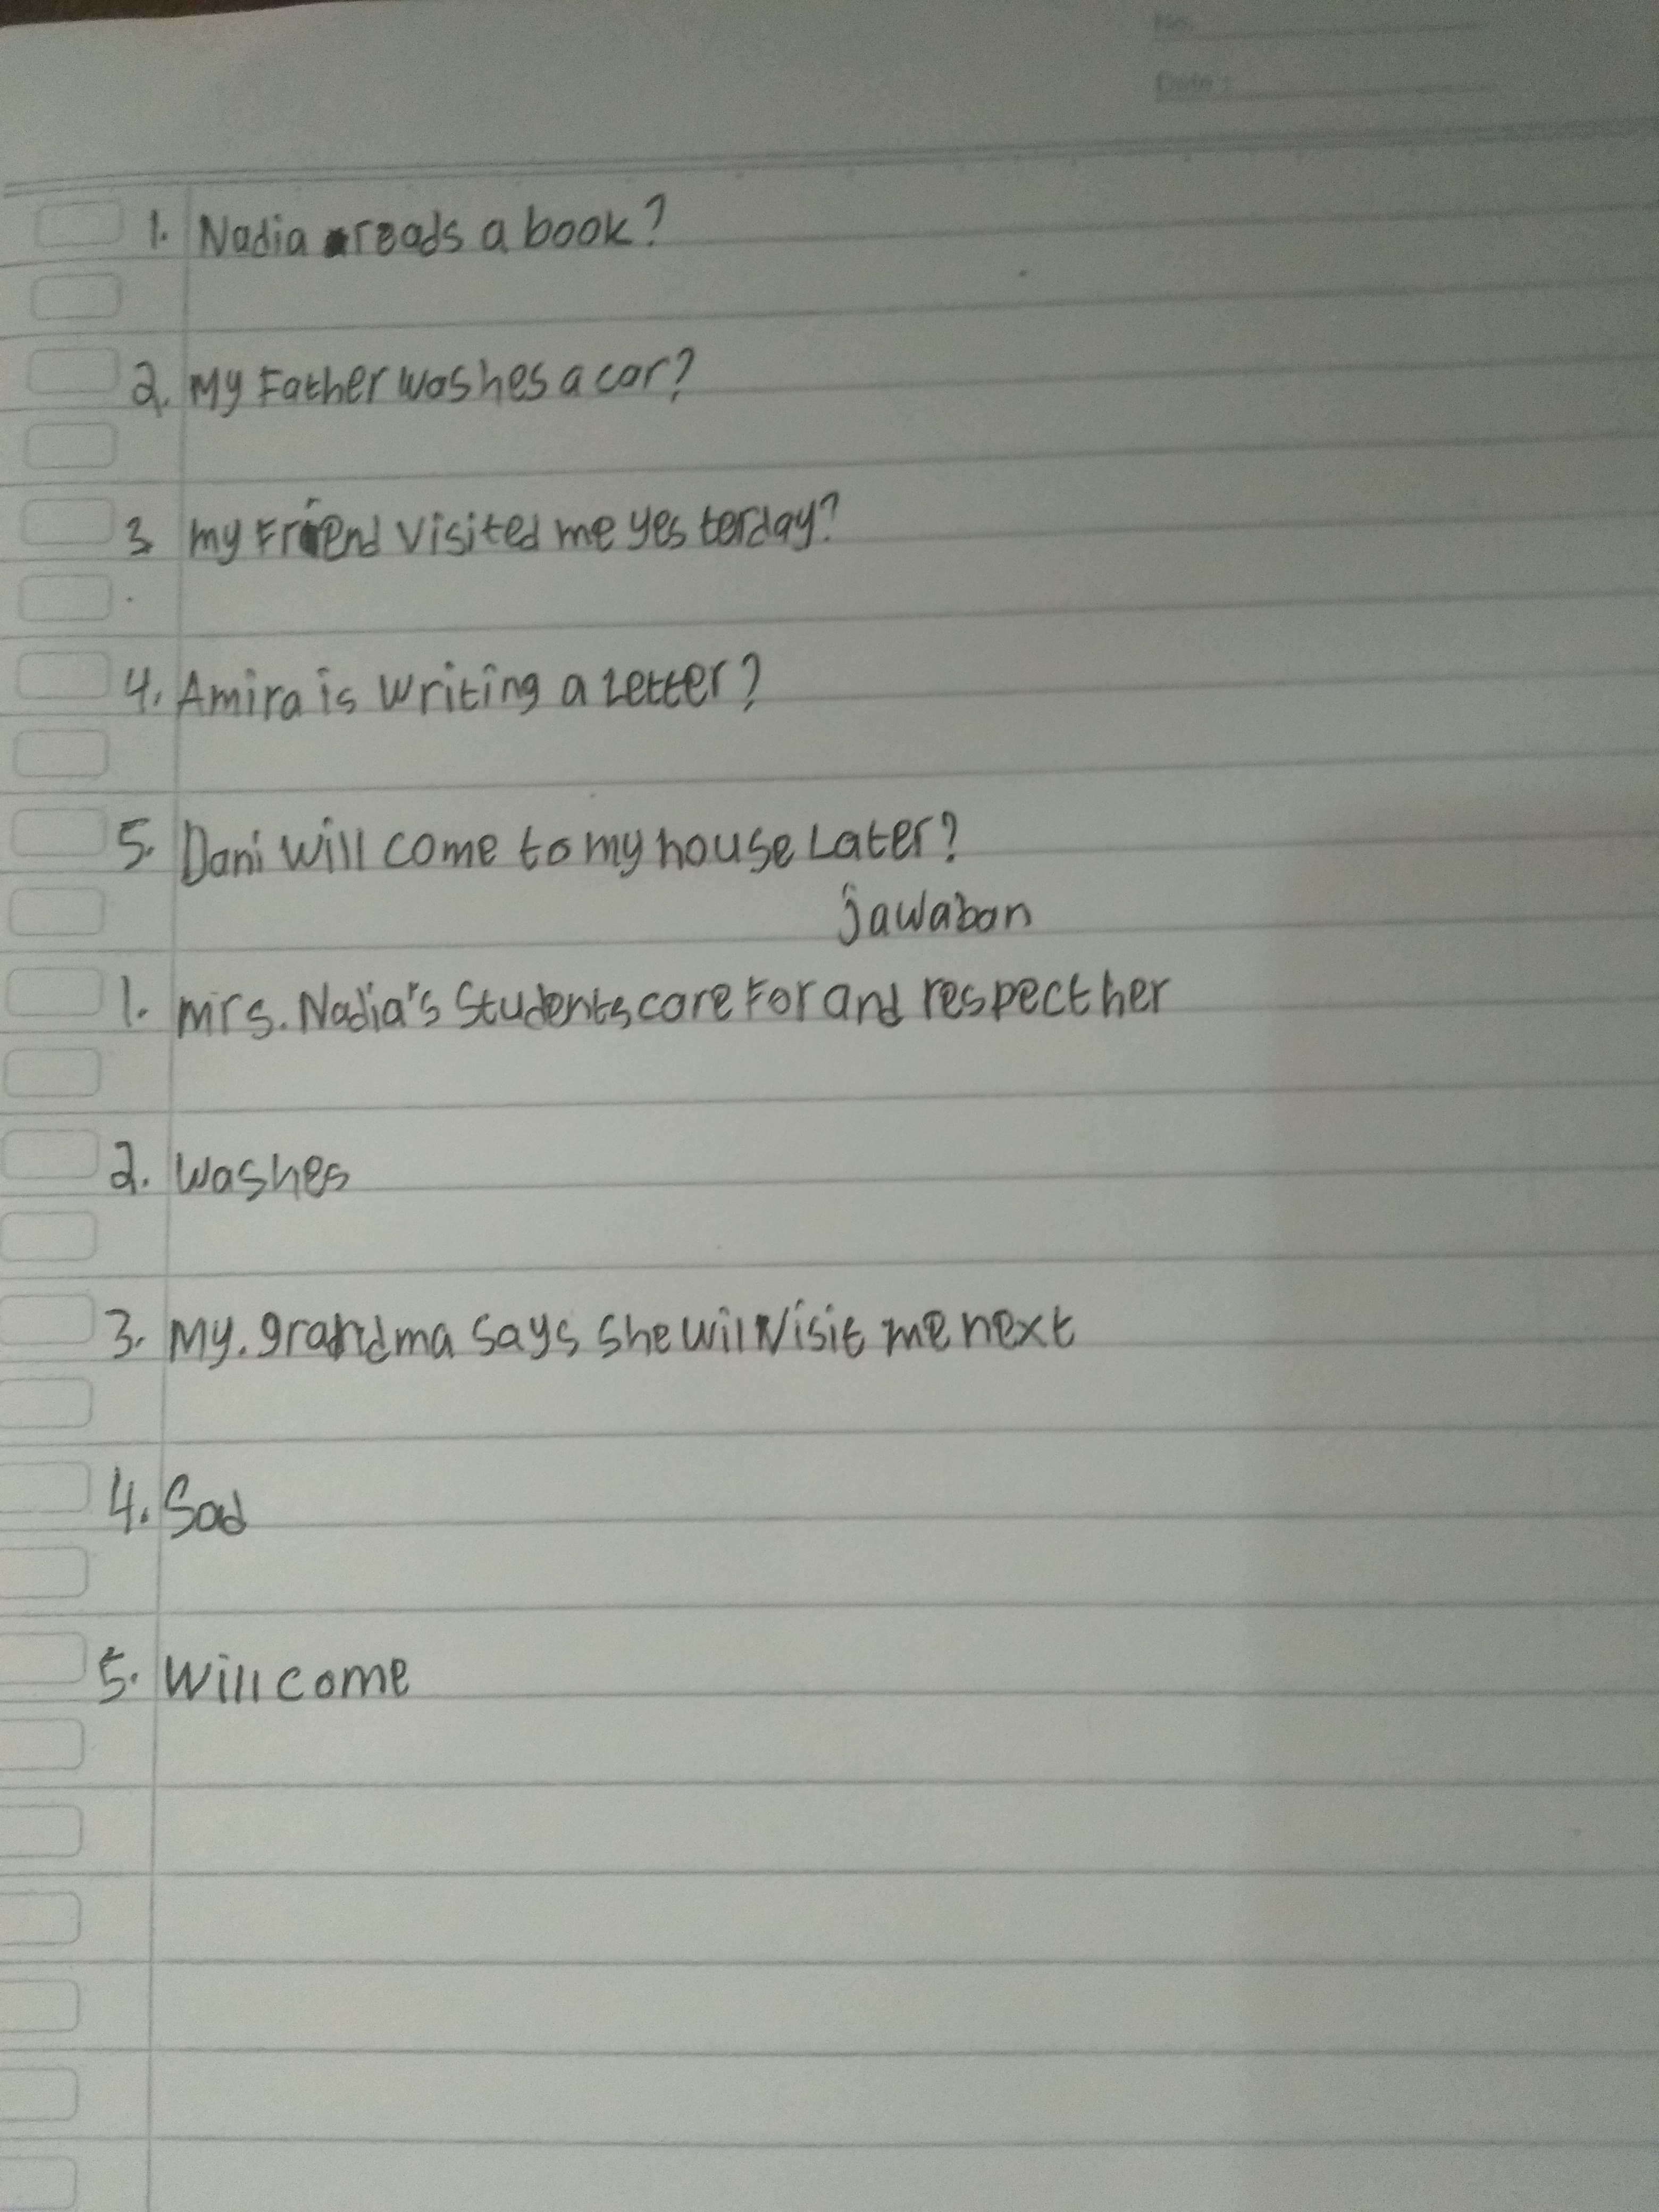 No.
Date :
1. Nadia reads a book?
2. My Father washes a car?
3 my Friend visited me yesterday?
4. Amira is writing a Letter?
5. Dani will come to my house Later?
jawaban
1. mrs. Nadia's Students care For and respect her
2. washes
3. My. grandma says she will visit me next
4. Sad
5. Will come